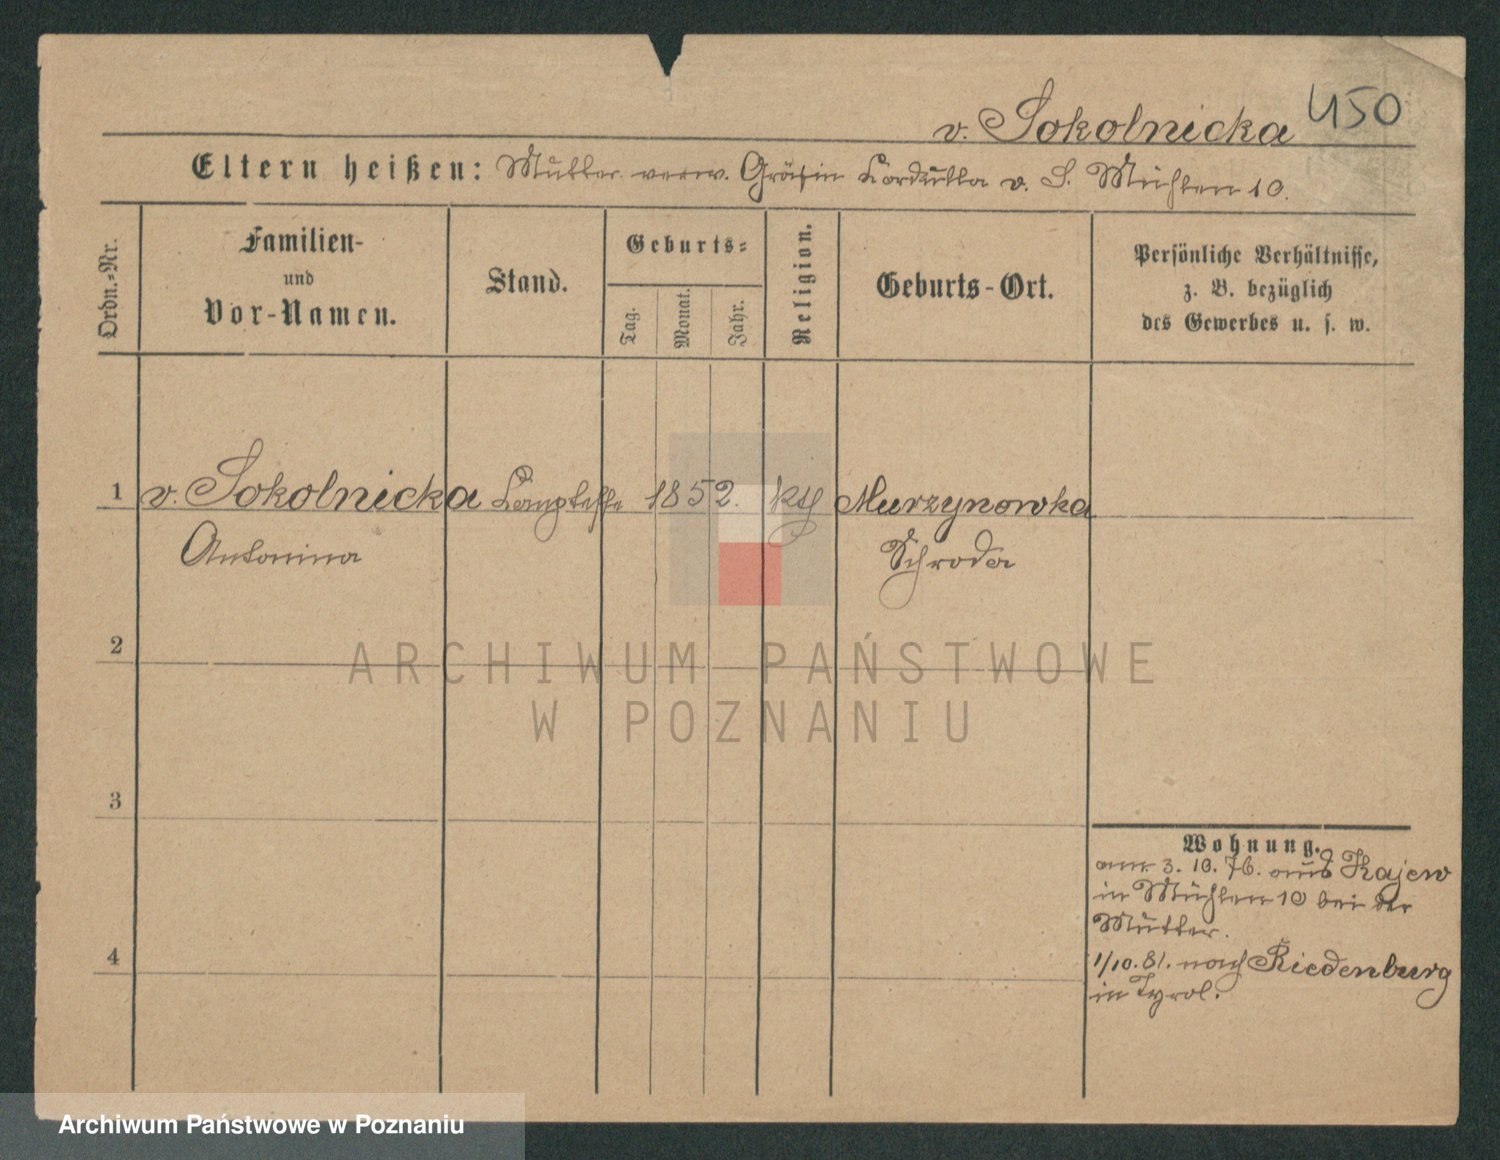 450
v. Sokolnicka
Eltern heißen: Mutter verw. Gräfin v. S. Mühlen 10.
Ordn.-Nr.
Familien-
und
Vor-Namen.
Stand.
Geburts-
Tag.
Monat.
Jahr.
Religion.
Geburts-Ort.
Persönliche Verhältnisse,
z. B. bezüglich
des Gewerbes u. s. w.
1 v. Sokolnicka 1852. kth Murzynowka
Antonina Schroda
2
ARCHIWUM PAŃSTWOWE
W POZNANIU
3
Wohnung.
am 3. 10. 76. aus Kajew
in Mühlen 10 bei der
Mutter.
4
1/10. 81. nach Riedenburg
in Tyrol.
Archiwum Państwowe w Poznaniu